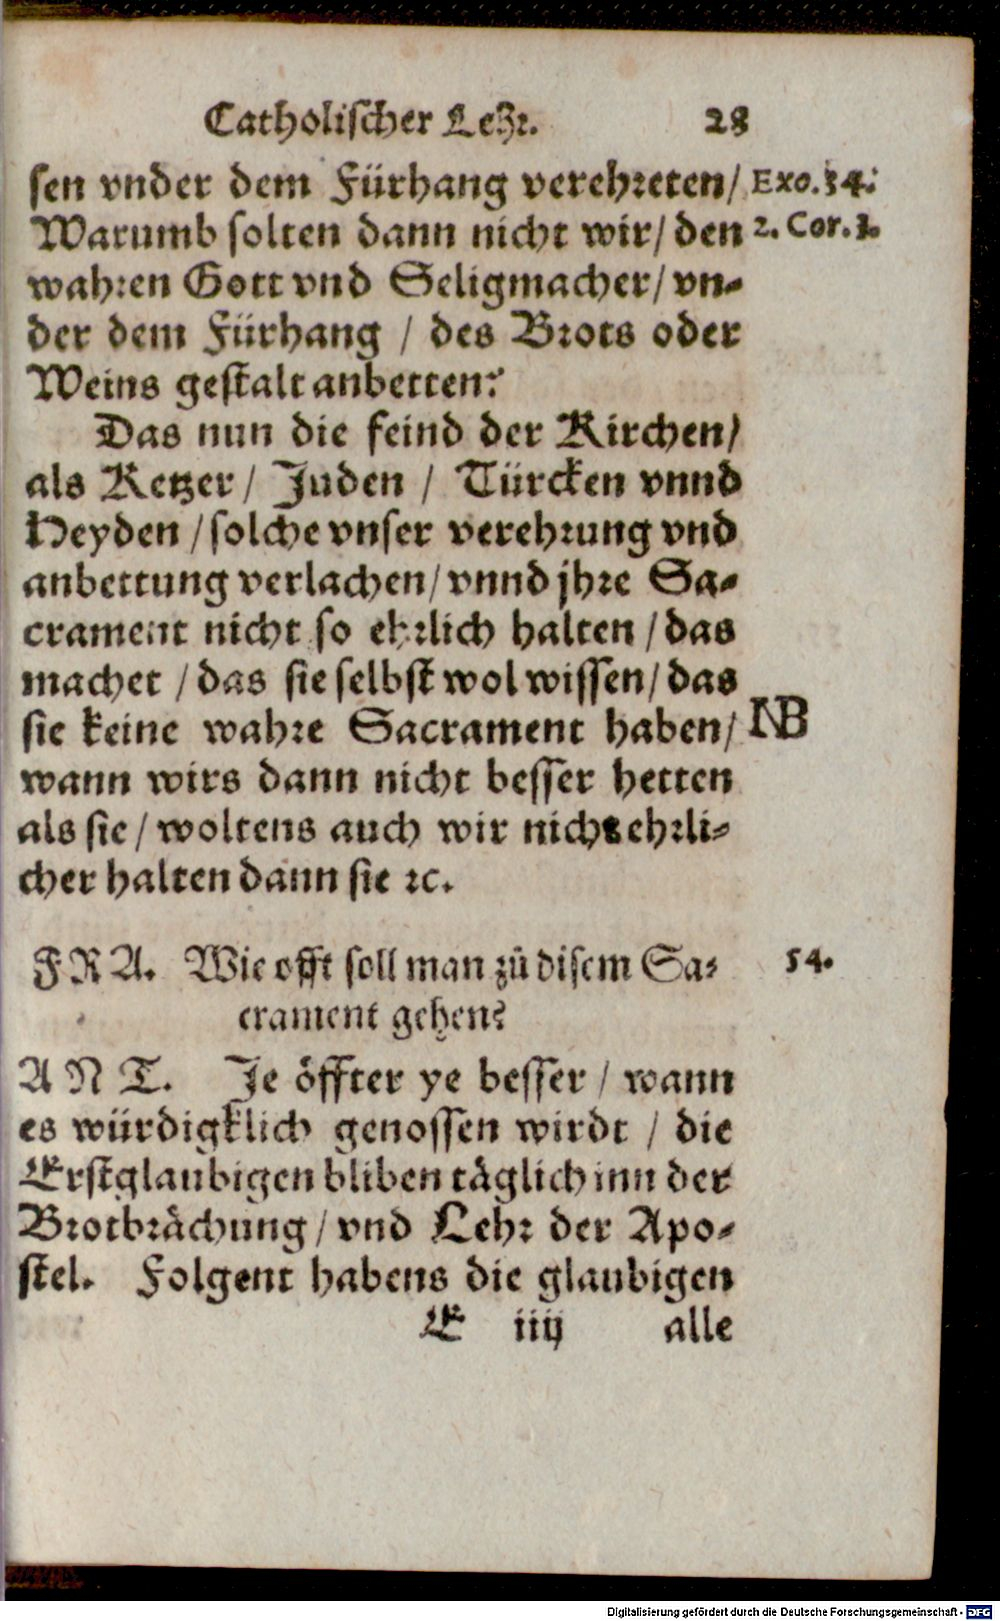 Catholischer Lehr. 28
sen vnder dem Fürhang verehreten/ Exo.34.
Warumb solten dann nicht wir/ den 2. Cor.3.
wahren Gott vnd Seligmacher/ vn-
der dem Fürhang / des Brots oder
Weins gestalt anbetten?
Das nun die feind der Kirchen/
als Ketzer/ Juden / Türcken vnnd
Heyden /solche vnser verehrung vnd
anbettung verlachen/ vnnd jhre Sa-
crament nicht so ehrlich halten /das
machet /das sie selbst wol wissen/ das
sie keine wahre Sacrament haben/ NB
wann wirs dann nicht besser hetten
als sie/ woltens auch wir nicht ehrli-
cher halten dann sie ꝛc.
FRA. Wie offt soll man zů disem Sa- 54.
crament gehen?
ANT. Je öffter ye besser / wann
es würdigklich genossen wirdt / die
Erstglaubigen bliben täglich inn der
Brotbrächung/ vnd Lehr der Apo-
stel. Folgent habens die glaubigen
E iiij alle
Digitalisierung gefördert durch die Deutsche Forschungsgemeinschaft - DFG